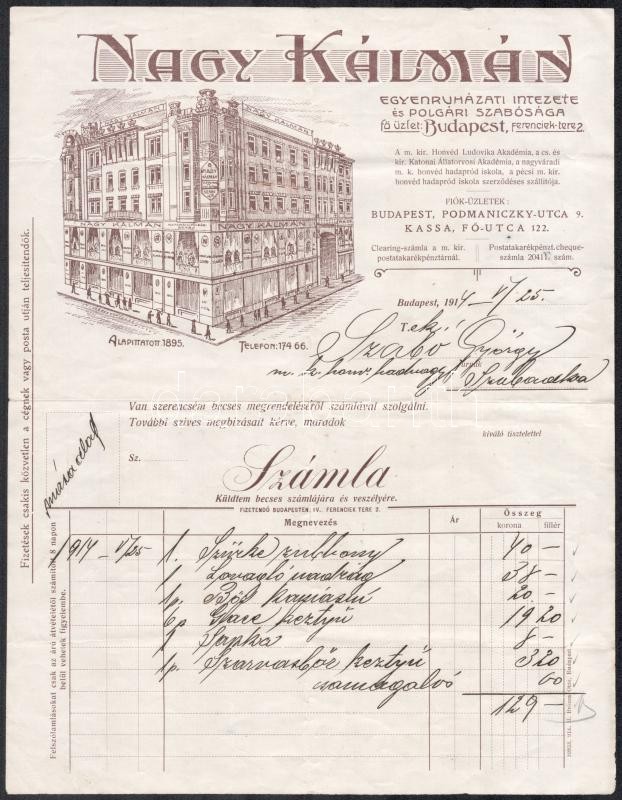 NAGY KÁLMÁN
EGYENRUHÁZATI INTÉZETE
és POLGÁRI SZABÓSÁGA
fő üzlet: Budapest, Ferenciek-tere 2.
A m. kir. Honvéd Ludovika Akadémia, a cs. és
kir. Katonai Állatorvosi Akadémia, a nagyváradi
m. k. honvéd hadapród iskola, a pécsi m. kir.
honvéd hadapród iskola szerződéses szállítója.
FIÓK-ÜZLETEK:
BUDAPEST, PODMANICZKY-UTCA 9.
KASSA, FŐ-UTCA 122.
Clearing-számla a m. kir.
postatakarékpénztárnál.
Postatakarékpénzt. cheque-
számla 20411. szám.
NAGY KÁLMÁN
NAGY KÁLMÁN
NAGY KÁLMÁN
NAGY KÁLMÁN
ALAPITTATOTT: 1895.
TELEFON: 174 66.
Budapest, 1914 – V/25.
T. ek.:
Szabó György
m. k. honv. hadnagy úrnak
Szabadka
Van szerencsém becses megrendeléséről számlával szolgálni.
További szives megbizásait kérve, maradok
kiváló tisztelettel
másodlat
Sz.
Számla
Küldtem becses számlájára és veszélyére.
FIZETENDŐ BUDAPESTEN, IV., FERENCIEK TERE 2.
Megnevezés
Ár
Összeg
korona
fillér
1914 – V/25
1. Szürke zubbony 40 –
1 Lovagló nadrág 38 –
1p. Bőr kamásni 20 –
6p Glacé keztyü 19 20
1 Sapka 8 –
1p. Szarvasbőr keztyü 3 20
60
129 –
Fizetések csakis közvetlen a cégnek vagy posta utján teljesitendők.
Felszólamlásokat csak az árú átvételétől számított 8 napon
belül vehetek figyelembe.